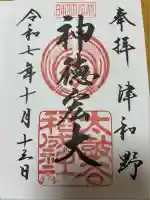 奉拝 津和野
神徳宏大
太皷谷
稲成神社
令和七年十月十三日